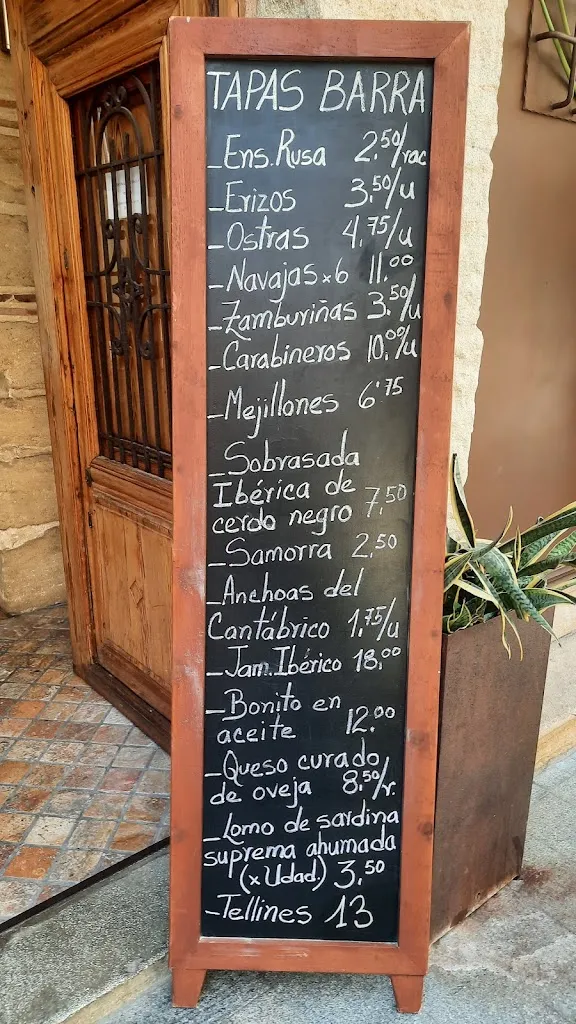 TAPAS BARRA
-Ens.Rusa 2,50/rac
-Erizos 3,50/u
-Ostras 4,75/u
-Navajas x 6 11.00
-Zamburiñas 3,50/u
-Carabineros 10,00/u
-Mejillones 6'75
-Sobrasada
Ibérica de
cerdo negro 7,50
-Samorra 2,50
-Anchoas del
Cantábrico 1,75/u
-Jam.Ibérico 18,00
-Bonito en
aceite 12.00
-Queso curado
de oveja 8,50/r.
-Lomo de sardina
suprema ahumada
(x Udad.) 3,50
-Tellines 13